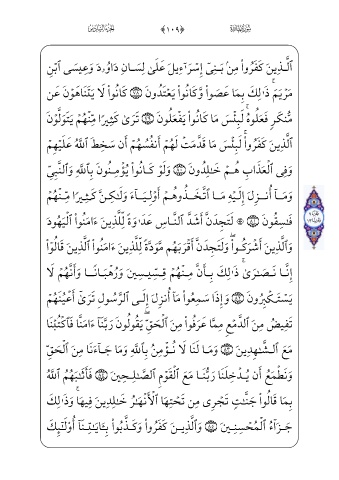 سُورَةُ المَائِدَةِ (١٠٩) الجُزْءُ السَّادِسُ
ٱلَّذِينَ كَفَرُوا۟ مِنۢ بَنِىٓ إِسْرَٰٓءِيلَ عَلَىٰ لِسَانِ دَاوُۥدَ وَعِيسَى ٱبْنِ
مَرْيَمَ ۚ ذَٰلِكَ بِمَا عَصَوا۟ وَّكَانُوا۟ يَعْتَدُونَ ٧٨ كَانُوا۟ لَا يَتَنَاهَوْنَ عَن
مُّنكَرٍ فَعَلُوهُ ۚ لَبِئْسَ مَا كَانُوا۟ يَفْعَلُونَ ٧٩ تَرَىٰ كَثِيرًا مِّنْهُمْ يَتَوَلَّوْنَ
ٱلَّذِينَ كَفَرُوا۟ ۚ لَبِئْسَ مَا قَدَّمَتْ لَهُمْ أَنفُسُهُمْ أَن سَخِطَ ٱللَّهُ عَلَيْهِمْ
وَفِى ٱلْعَذَابِ هُمْ خَٰلِدُونَ ٨٠ وَلَوْ كَانُوا۟ يُؤْمِنُونَ بِٱللَّهِ وَٱلنَّبِىِّ
وَمَآ أُنزِلَ إِلَيْهِ مَا ٱتَّخَذُوهُمْ أَوْلِيَآءَ وَلَٰكِنَّ كَثِيرًا مِّنْهُمْ
فَٰسِقُونَ ٨١ ۞ لَتَجِدَنَّ أَشَدَّ ٱلنَّاسِ عَدَٰوَةً لِّلَّذِينَ ءَامَنُوا۟ ٱلْيَهُودَ
وَٱلَّذِينَ أَشْرَكُوا۟ ۖ وَلَتَجِدَنَّ أَقْرَبَهُم مَّوَدَّةً لِّلَّذِينَ ءَامَنُوا۟ ٱلَّذِينَ قَالُوٓا۟
إِنَّا نَصَٰرَىٰ ۚ ذَٰلِكَ بِأَنَّ مِنْهُمْ قِسِّيسِينَ وَرُهْبَانًا وَأَنَّهُمْ لَا
يَسْتَكْبِرُونَ ٨٢ وَإِذَا سَمِعُوا۟ مَآ أُنزِلَ إِلَى ٱلرَّسُولِ تَرَىٰٓ أَعْيُنَهُمْ
تَفِيضُ مِنَ ٱلدَّمْعِ مِمَّا عَرَفُوا۟ مِنَ ٱلْحَقِّ ۖ يَقُولُونَ رَبَّنَآ ءَامَنَّا فَٱكْتُبْنَا
مَعَ ٱلشَّٰهِدِينَ ٨٣ وَمَا لَنَا لَا نُؤْمِنُ بِٱللَّهِ وَمَا جَآءَنَا مِنَ ٱلْحَقِّ
وَنَطْمَعُ أَن يُدْخِلَنَا رَبُّنَا مَعَ ٱلْقَوْمِ ٱلصَّٰلِحِينَ ٨٤ فَأَثَٰبَهُمُ ٱللَّهُ
بِمَا قَالُوا۟ جَنَّٰتٍ تَجْرِى مِن تَحْتِهَا ٱلْأَنْهَٰرُ خَٰلِدِينَ فِيهَا ۚ وَذَٰلِكَ
جَزَآءُ ٱلْمُحْسِنِينَ ٨٥ وَٱلَّذِينَ كَفَرُوا۟ وَكَذَّبُوا۟ بِـَٔايَٰتِنَآ أُو۟لَٰٓئِكَ